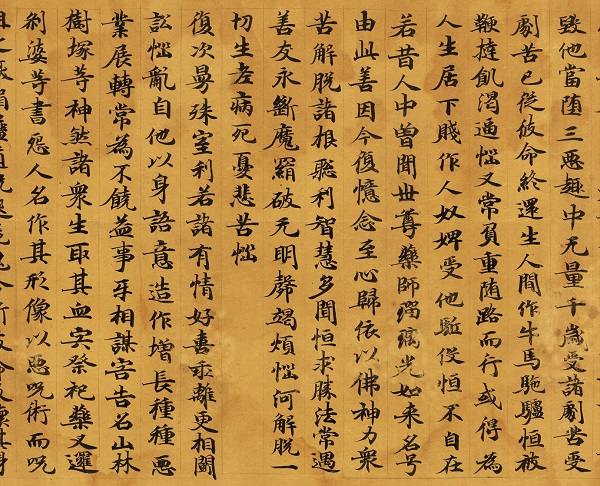 毀他當堕三惡趣中无量千歲受諸劇苦受
劇苦已從彼命終還生人間作牛馬駞驢恒被
鞭撻飢渴逼惱又常負重随路而行或得為
人生居下賤作人奴婢受他駈役恒不自在
若昔人中曾聞世尊藥師瑠璃光如来名号
由此善因今復憶念至心歸依以佛神力衆
苦解脫諸根聡利智慧多聞恒求勝法常遇
善友永斷魔羂破无明㲉竭煩惱河解脫一
切生老病死憂悲苦惱
復次曼殊室利若諸有情好喜乖離更相鬪
訟惱亂自他以身語意造作增長種種惡
業展轉常為不饒益事互相謀害告召山林
樹塚等神煞諸衆生取其血宍祭祀藥叉邏
刹婆等書怨人名作其形像以惡呪術而呪